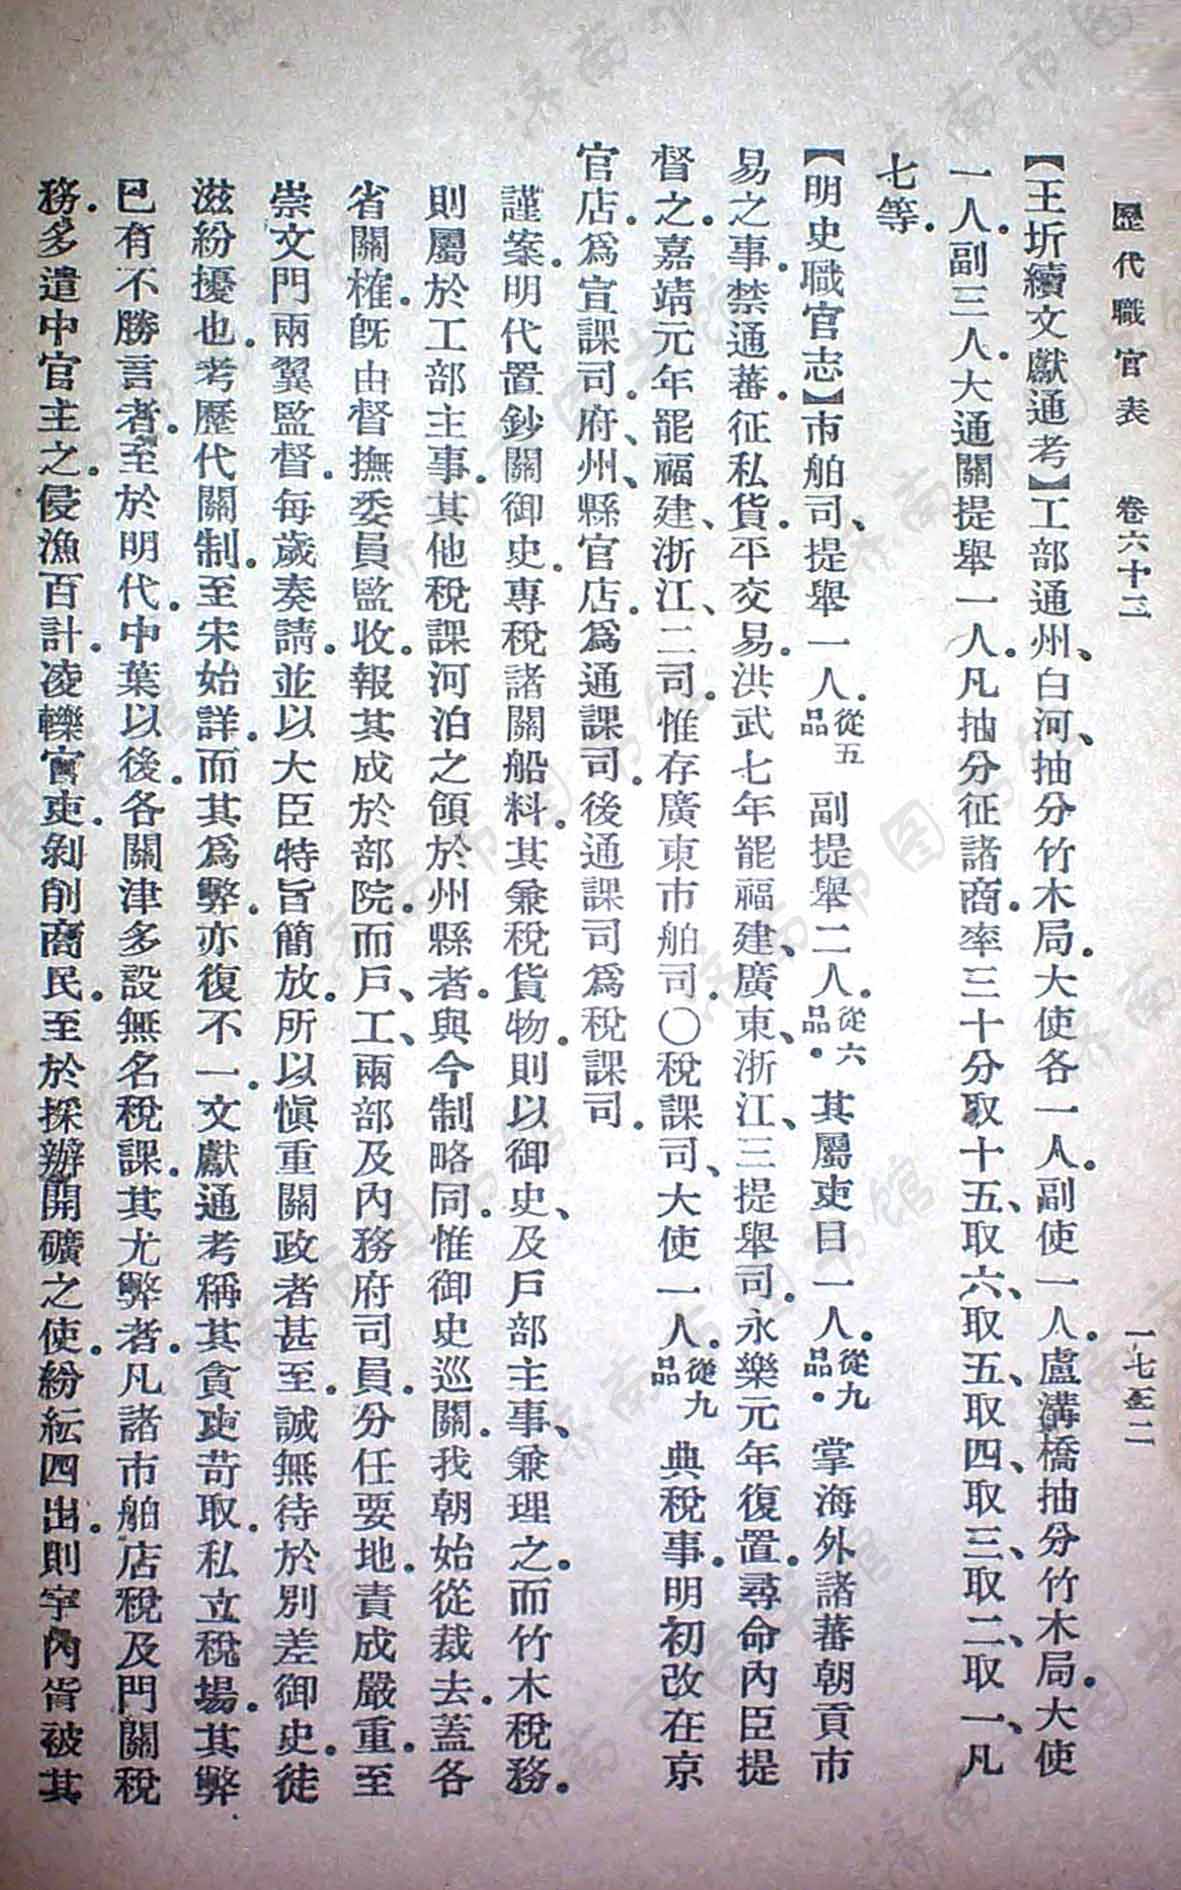 歷代職官表　卷六十二　一七三二
【王圻續文獻通考】工部通州、白河、抽分竹木局。大使各一人。副使一人。盧溝橋抽分竹木局。大使
一人。副三人。大通關提舉一人。凡抽分征諸商。率三十分取十五、取六、取五、取四、取三、取二、取一、凡
七等。
【明史職官志】市舶司、提舉一人。從五品　副提舉二人。從六品。其屬吏目一人。從九品。掌海外諸蕃朝貢市
易之事。禁通蕃。征私貨。平交易。洪武七年罷福建、廣東、浙江、三提舉司。永樂元年復置。尋命內臣提
督之。嘉靖元年罷福建、浙江、二司。惟存廣東市舶司。〇稅課司、大使一人。從九品　典稅事。明初改在京
官店。爲宣課司。府、州、縣官店。爲通課司。後通課司爲稅課司。
謹案。明代置鈔關御史。專稅諸關船料。其兼稅貨物。則以御史、及戶部主事、兼理之。而竹木稅務。
則屬於工部主事。其他稅課河泊之領於州縣者。與今制略同。惟御史巡關。我朝始從裁去。蓋各
省關榷。旣由督撫委員監收。報其成於部院。而戶、工、兩部及內務府司員。分任要地。責成嚴重。至
崇文門兩翼監督。每歲奏請。並以大臣特旨簡放。所以愼重關政者甚至。誠無待於別差御史。徒
滋紛擾也。考歷代關制。至宋始詳。而其爲弊。亦復不一。文獻通考稱其貪吏苛取。私立稅場。其弊
已有不勝言者。至於明代。中葉以後。各關津多設無名稅課。其尤弊者。凡諸市舶店稅及門關稅
務。多遣中官主之。侵漁百計。凌轢官吏。剝削商民。至於採辦開礦之使。紛紜四出。則宇內胥被其